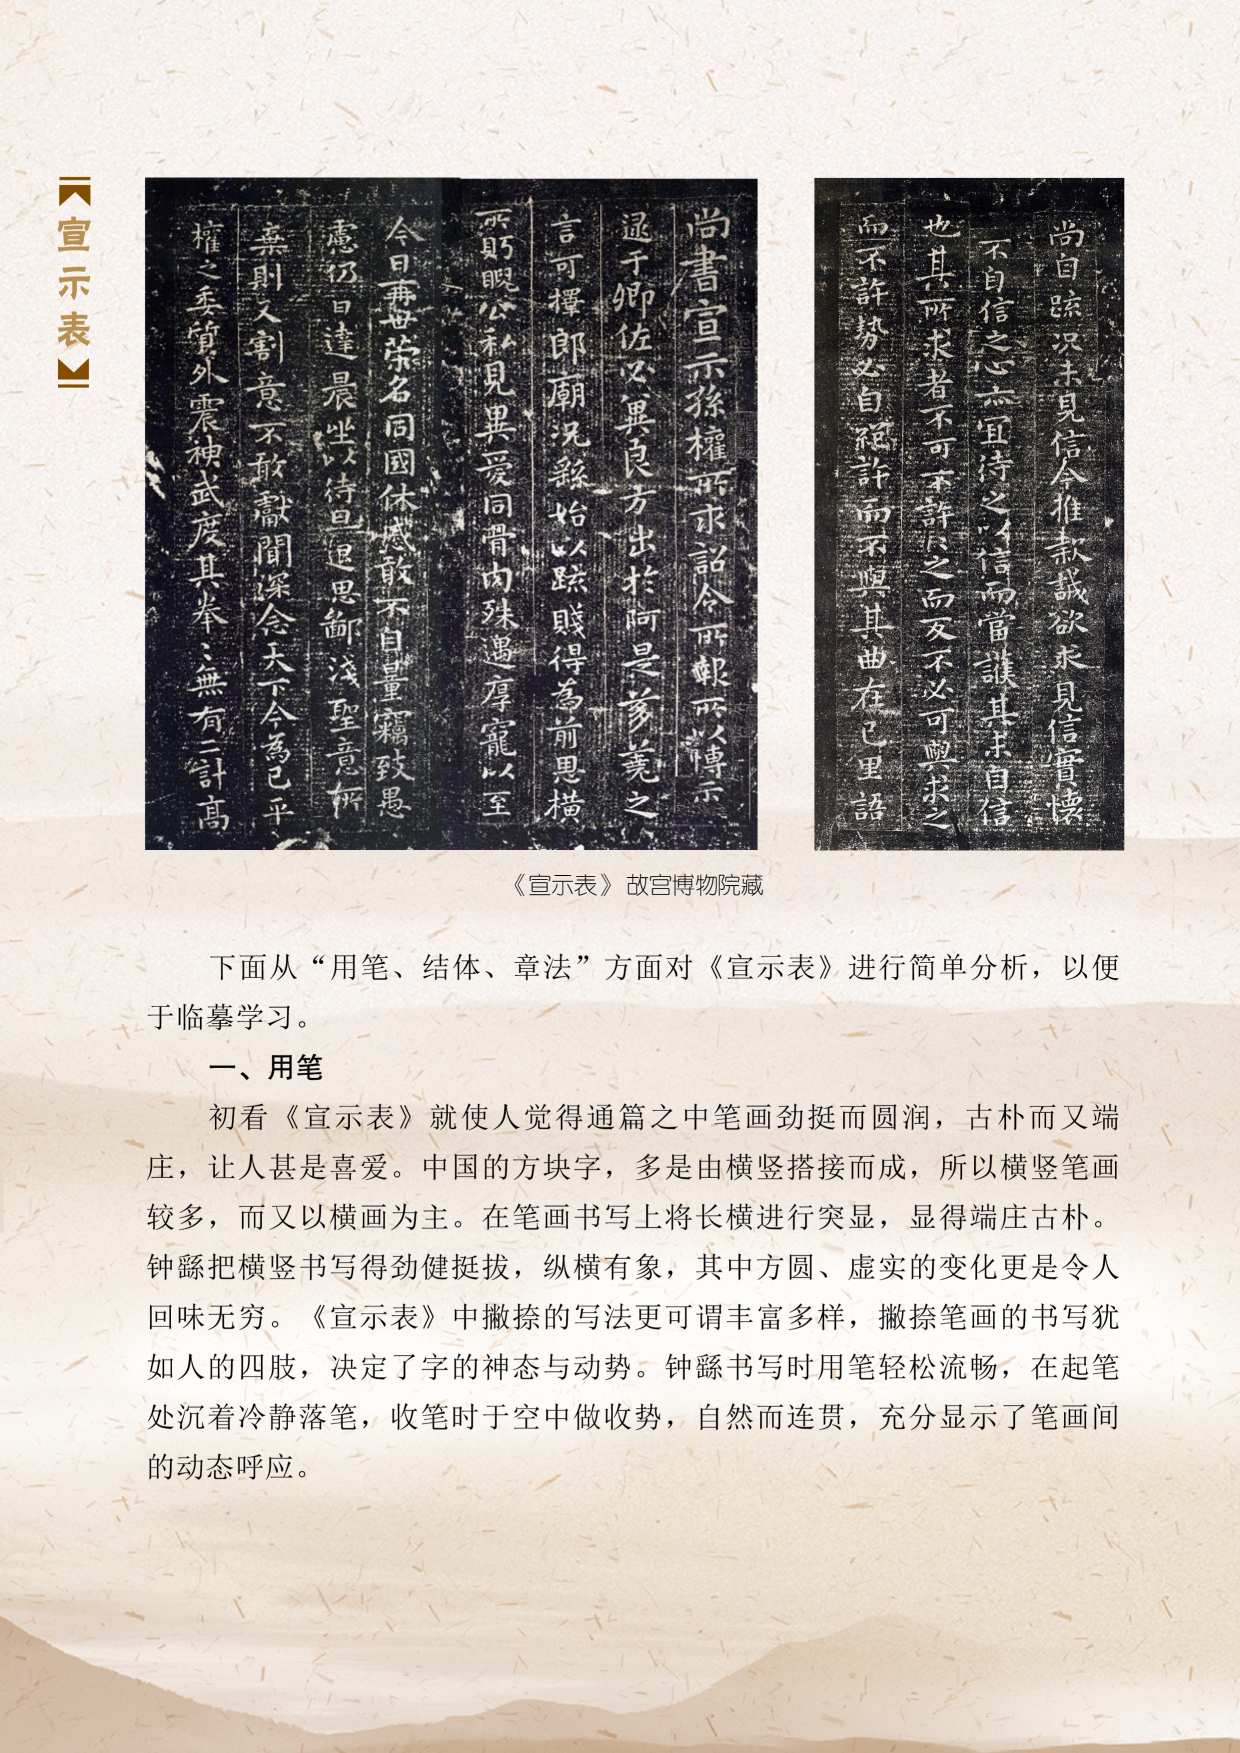 宣示表
尚書宣示孫權所求詔令所報所以博示
逮于卿佐必異良方出於阿是芻蕘之
言可擇郎廟況繇始以疏賤得為前恩橫
所眄睨公私見異愛同骨肉殊遇厚寵以至
今日再世榮名同國休慼敢不自量竊致愚
慮仍日達晨坐以待旦退思鄙淺聖意所
棄則又割意不敢獻聞深念天下今為已平
權之委質外震神武度其拳〻無有二計高
尚自疏況未見信今推款誠欲求見信實懷
不自信之心亦宜待之以信而當護其未自信
也其所求者不可不許許之而反不必可與求之
而不許勢必自絕許而不與其曲在己里語
《宣示表》 故宫博物院藏
下面从“用笔、结体、章法”方面对《宣示表》进行简单分析，以便
于临摹学习。
一、用笔
初看《宣示表》就使人觉得通篇之中笔画劲挺而圆润，古朴而又端
庄，让人甚是喜爱。中国的方块字，多是由横竖搭接而成，所以横竖笔画
较多，而又以横画为主。在笔画书写上将长横进行突显，显得端庄古朴。
钟繇把横竖书写得劲健挺拔，纵横有象，其中方圆、虚实的变化更是令人
回味无穷。《宣示表》中撇捺的写法更可谓丰富多样，撇捺笔画的书写犹
如人的四肢，决定了字的神态与动势。钟繇书写时用笔轻松流畅，在起笔
处沉着冷静落笔，收笔时于空中做收势，自然而连贯，充分显示了笔画间
的动态呼应。